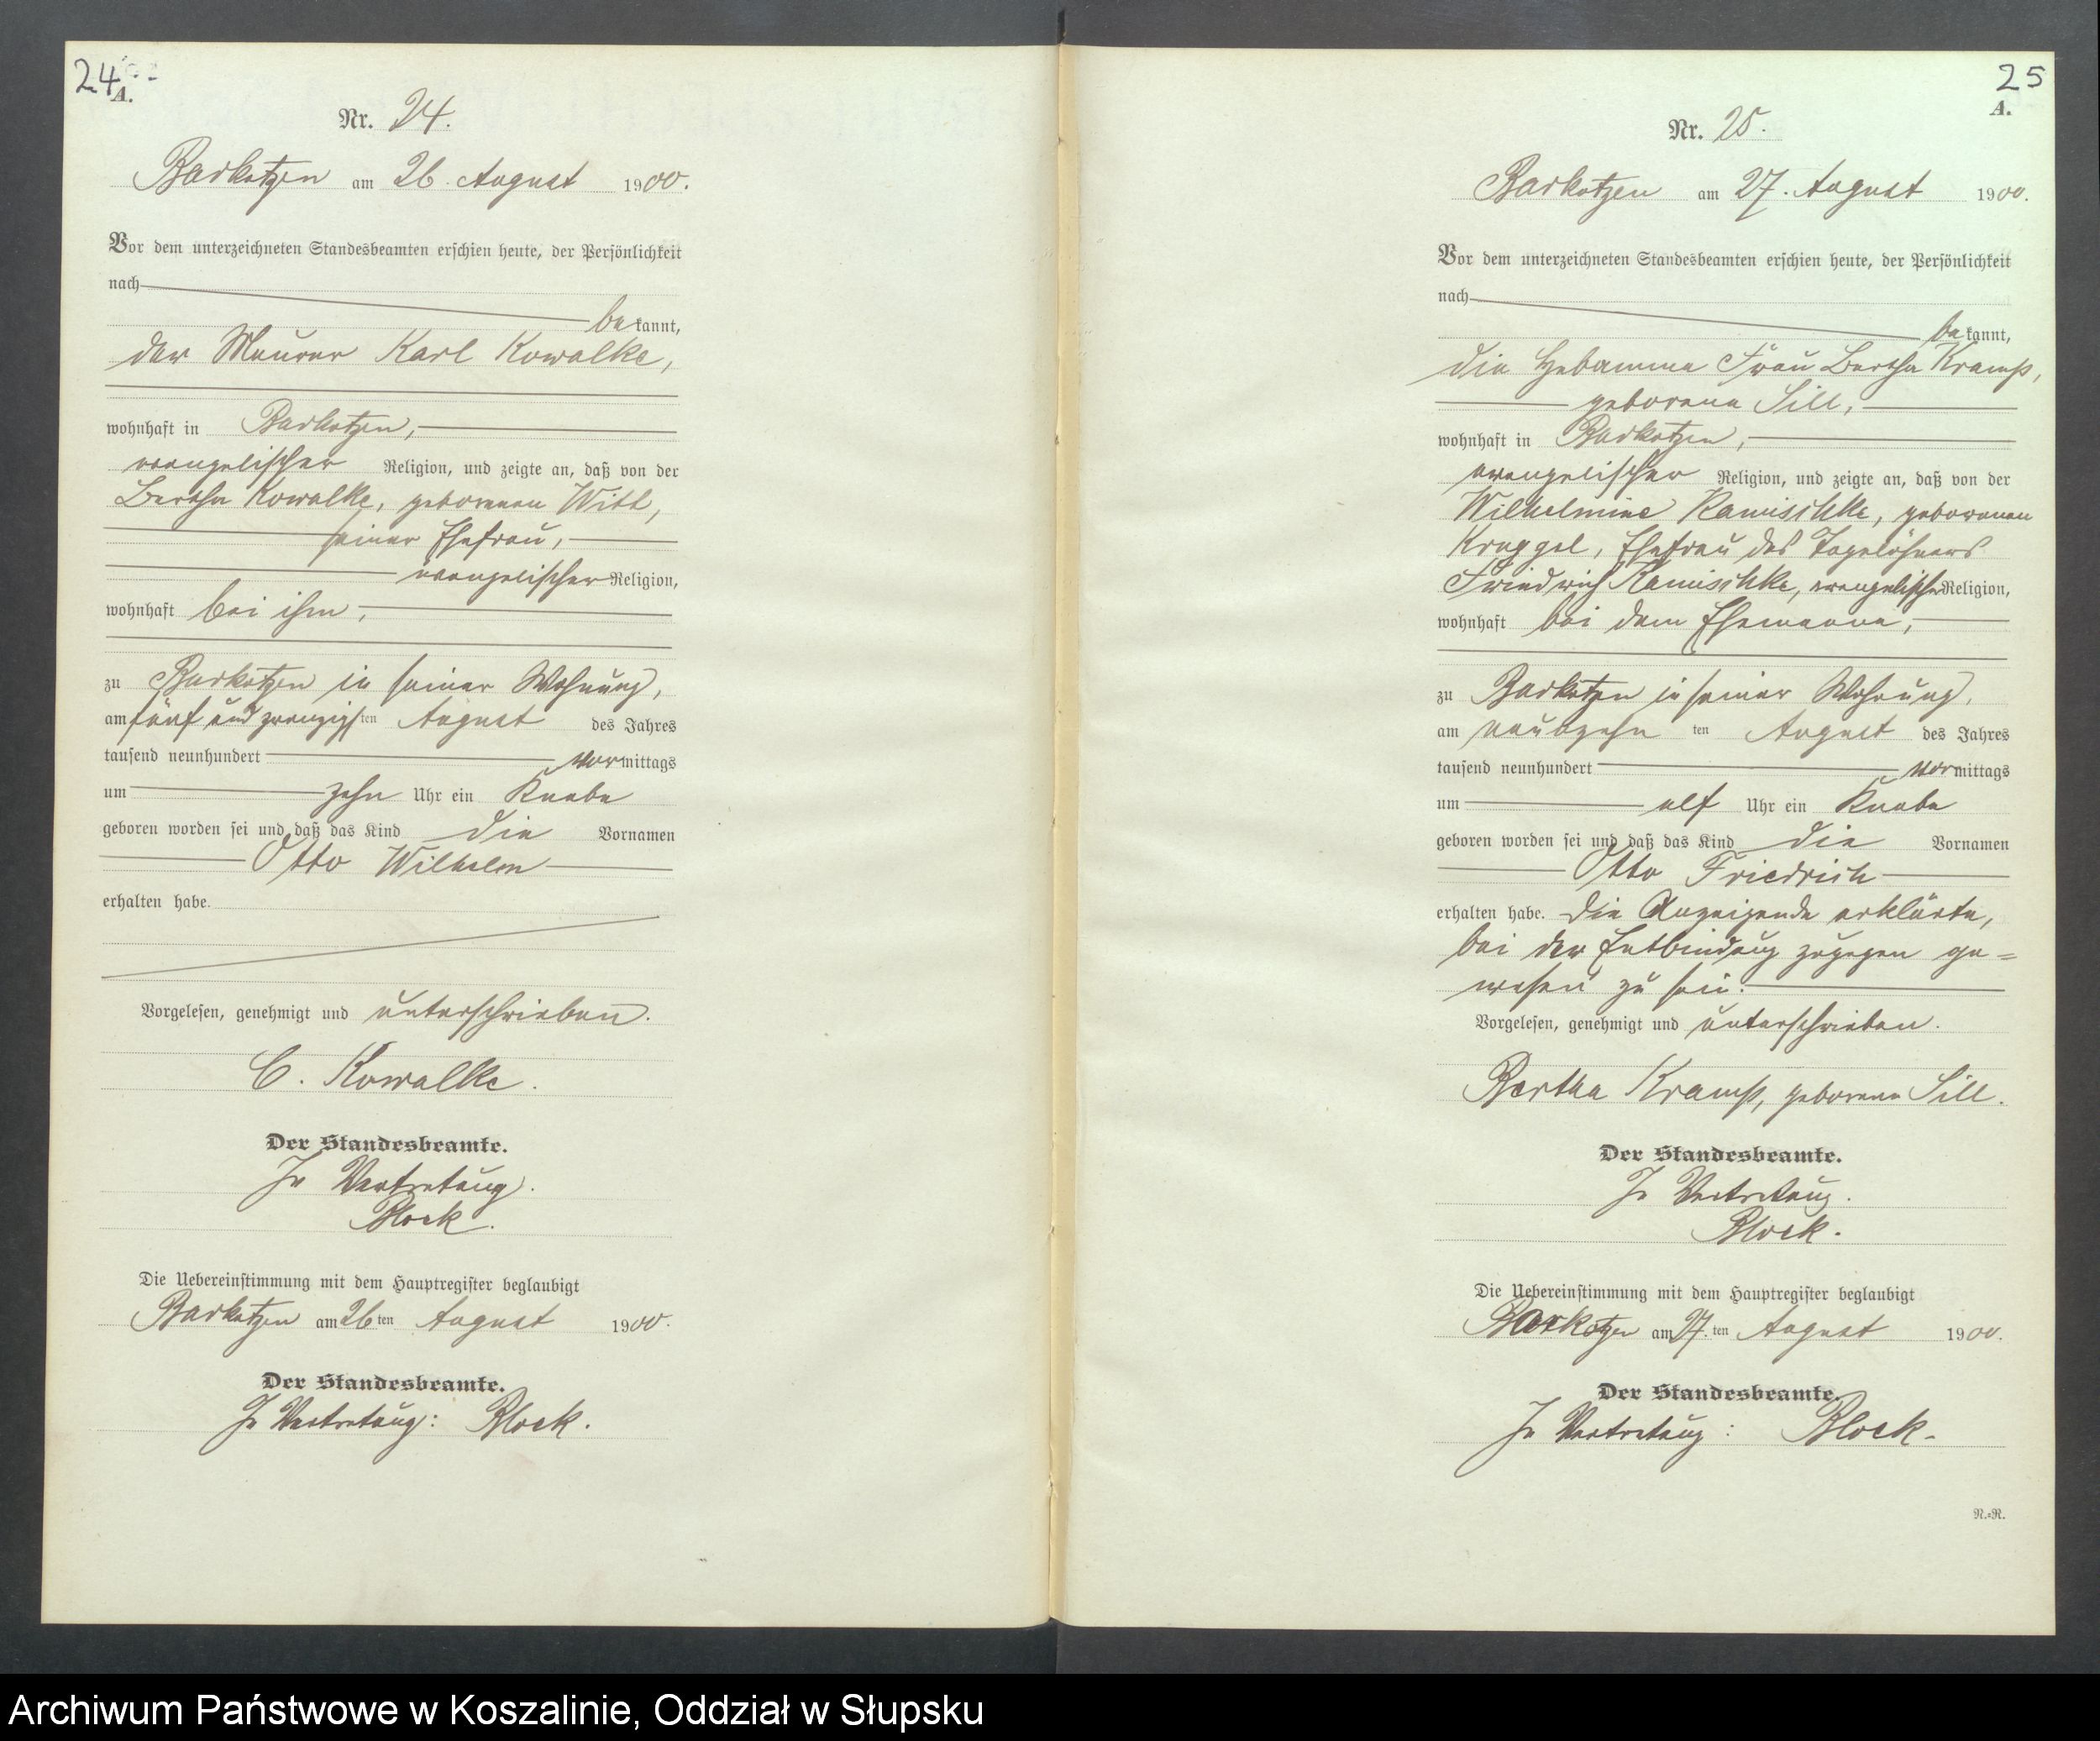 24
A.
Nr. 24.
Barkotzen am 26. August 1900.
Vor dem unterzeichneten Standesbeamten erschien heute, der Persönlichkeit
nach
bekannt,
der Maurer Karl Kowalke,
wohnhaft in Barkotzen,
evangelischer Religion, und zeigte an, daß von der
Bertha Kowalke, geborenen Witt,
seiner Ehefrau,
evangelischer Religion,
wohnhaft bei ihm,
zu Barkotzen in seiner Wohnung,
am fünf und zwanzigsten August des Jahres
tausend neunhundert Vormittags
um zehn Uhr ein Knabe
geboren worden sei und daß das Kind die Vornamen
Otto Wilhelm
erhalten habe.
Vorgelesen, genehmigt und unterschrieben.
C. Kowalke.
Der Standesbeamte.
In Vertretung.
Block.
Die Uebereinstimmung mit dem Hauptregister beglaubigt
Barkotzen am 26ten August 1900.
Der Standesbeamte.
In Vertretung: Block.
25
A.
Nr. 25.
Barkotzen am 27. August 1900.
Vor dem unterzeichneten Standesbeamten erschien heute, der Persönlichkeit
nach
bekannt,
die Hebamme Frau Bertha Kramp,
geborene Sill,
wohnhaft in Barkotzen,
evangelischer Religion, und zeigte an, daß von der
Wilhelmine Ramischke, geborenen
Kruggel, Ehefrau des Tagelöhners
Friedrich Ramischke, evangelischer Religion,
wohnhaft bei dem Ehemanne,
zu Barkotzen in seiner Wohnung,
am neunzehnten August des Jahres
tausend neunhundert Vormittags
um elf Uhr ein Knabe
geboren worden sei und daß das Kind die Vornamen
Otto Friedrich
erhalten habe. Die Anzeigende erklärte,
bei der Entbindung zugegen ge=
wesen zu sein.
Vorgelesen, genehmigt und unterschrieben.
Bertha Kramp, geborene Sill.
Der Standesbeamte.
In Vertretung.
Block.
Die Uebereinstimmung mit dem Hauptregister beglaubigt
Barkotzen am 27.ten August 1900.
Der Standesbeamte.
In Vertretung: Block.
N.=R.
Archiwum Państwowe w Koszalinie, Oddział w Słupsku